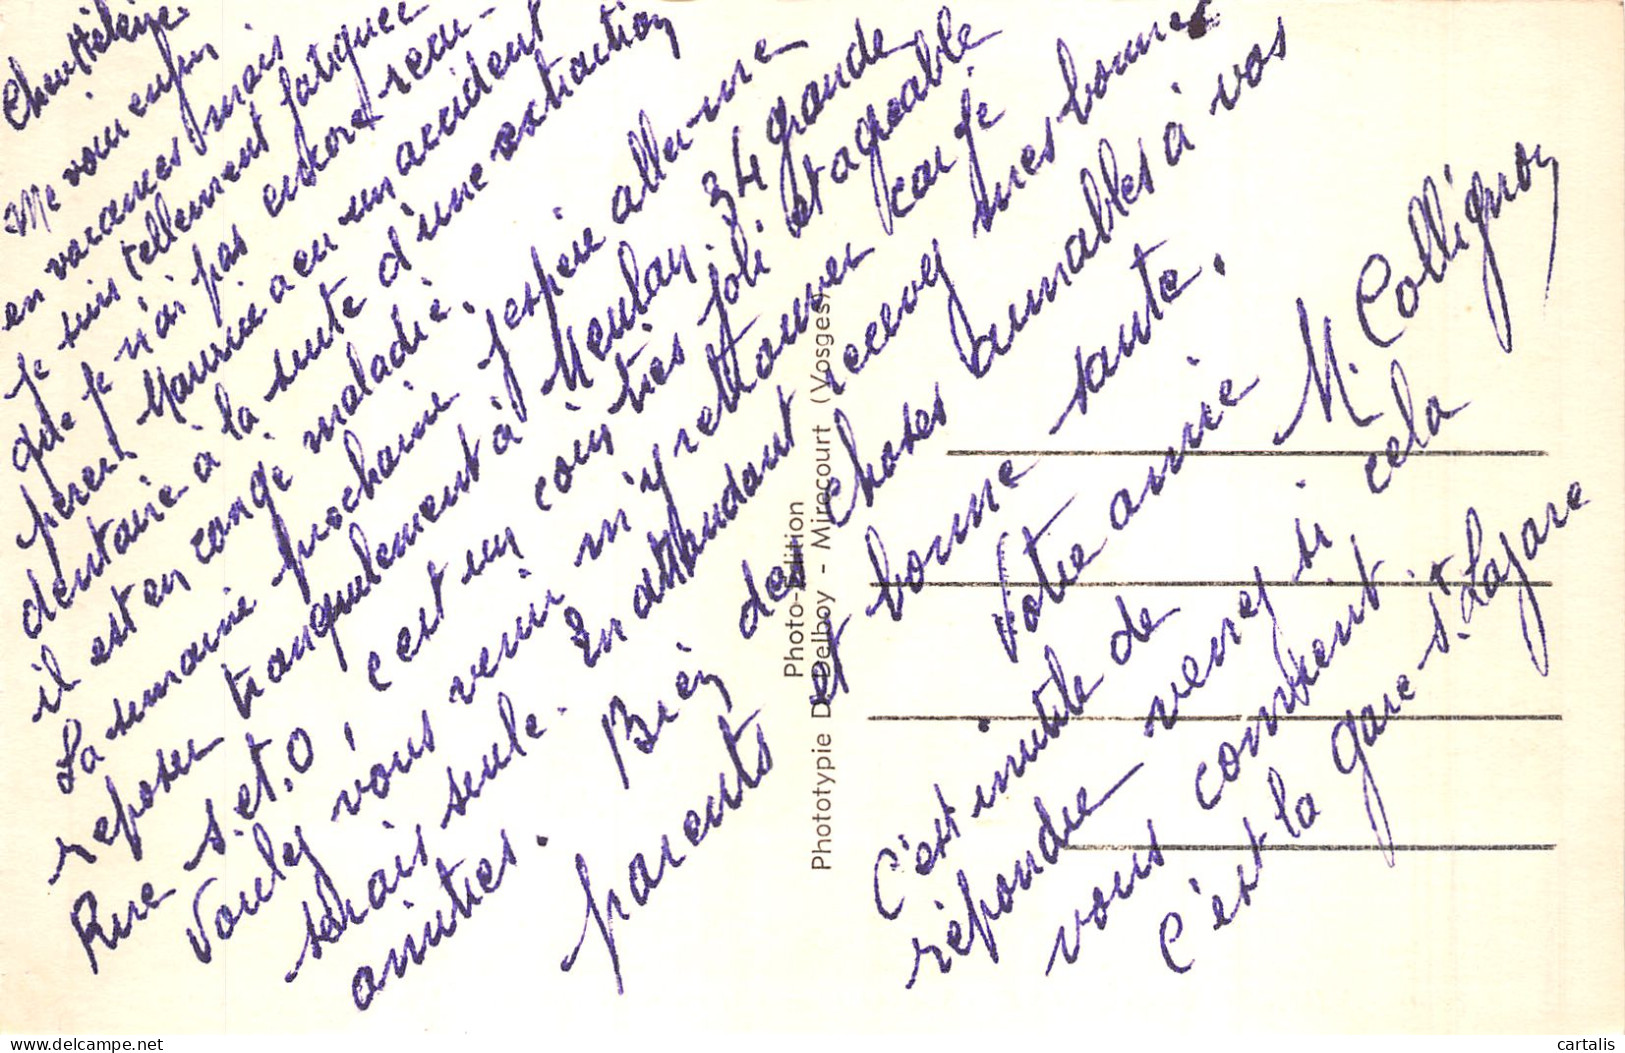 Cher Hélène.
Me voici enfin
en vacances mais
je suis tellement fatiguée
que je n'ai pas encore récu-
pérer. Maurice a eu un accident
dentaire à la suite d'une extraction
il est en congé maladie.
La semaine prochaine j'espère aller me
reposer tranquillement à Meulan, 34 grande
Rue S et. O, c'est un coin très joli et agréable
Voulez vous venir m'y retrouver car je
serais seule. En attendant recevez mes bonnes
amitiés. Bien des choses aimables à vos
parents et bonne santé.
Votre amie M. Collignon
C'est inutile de
répondre venez si cela
vous convient
c'est la gare St. Lazare
Photo-Edition
Phototypie D. Delboy - Mirecourt (Vosges)
cartalis